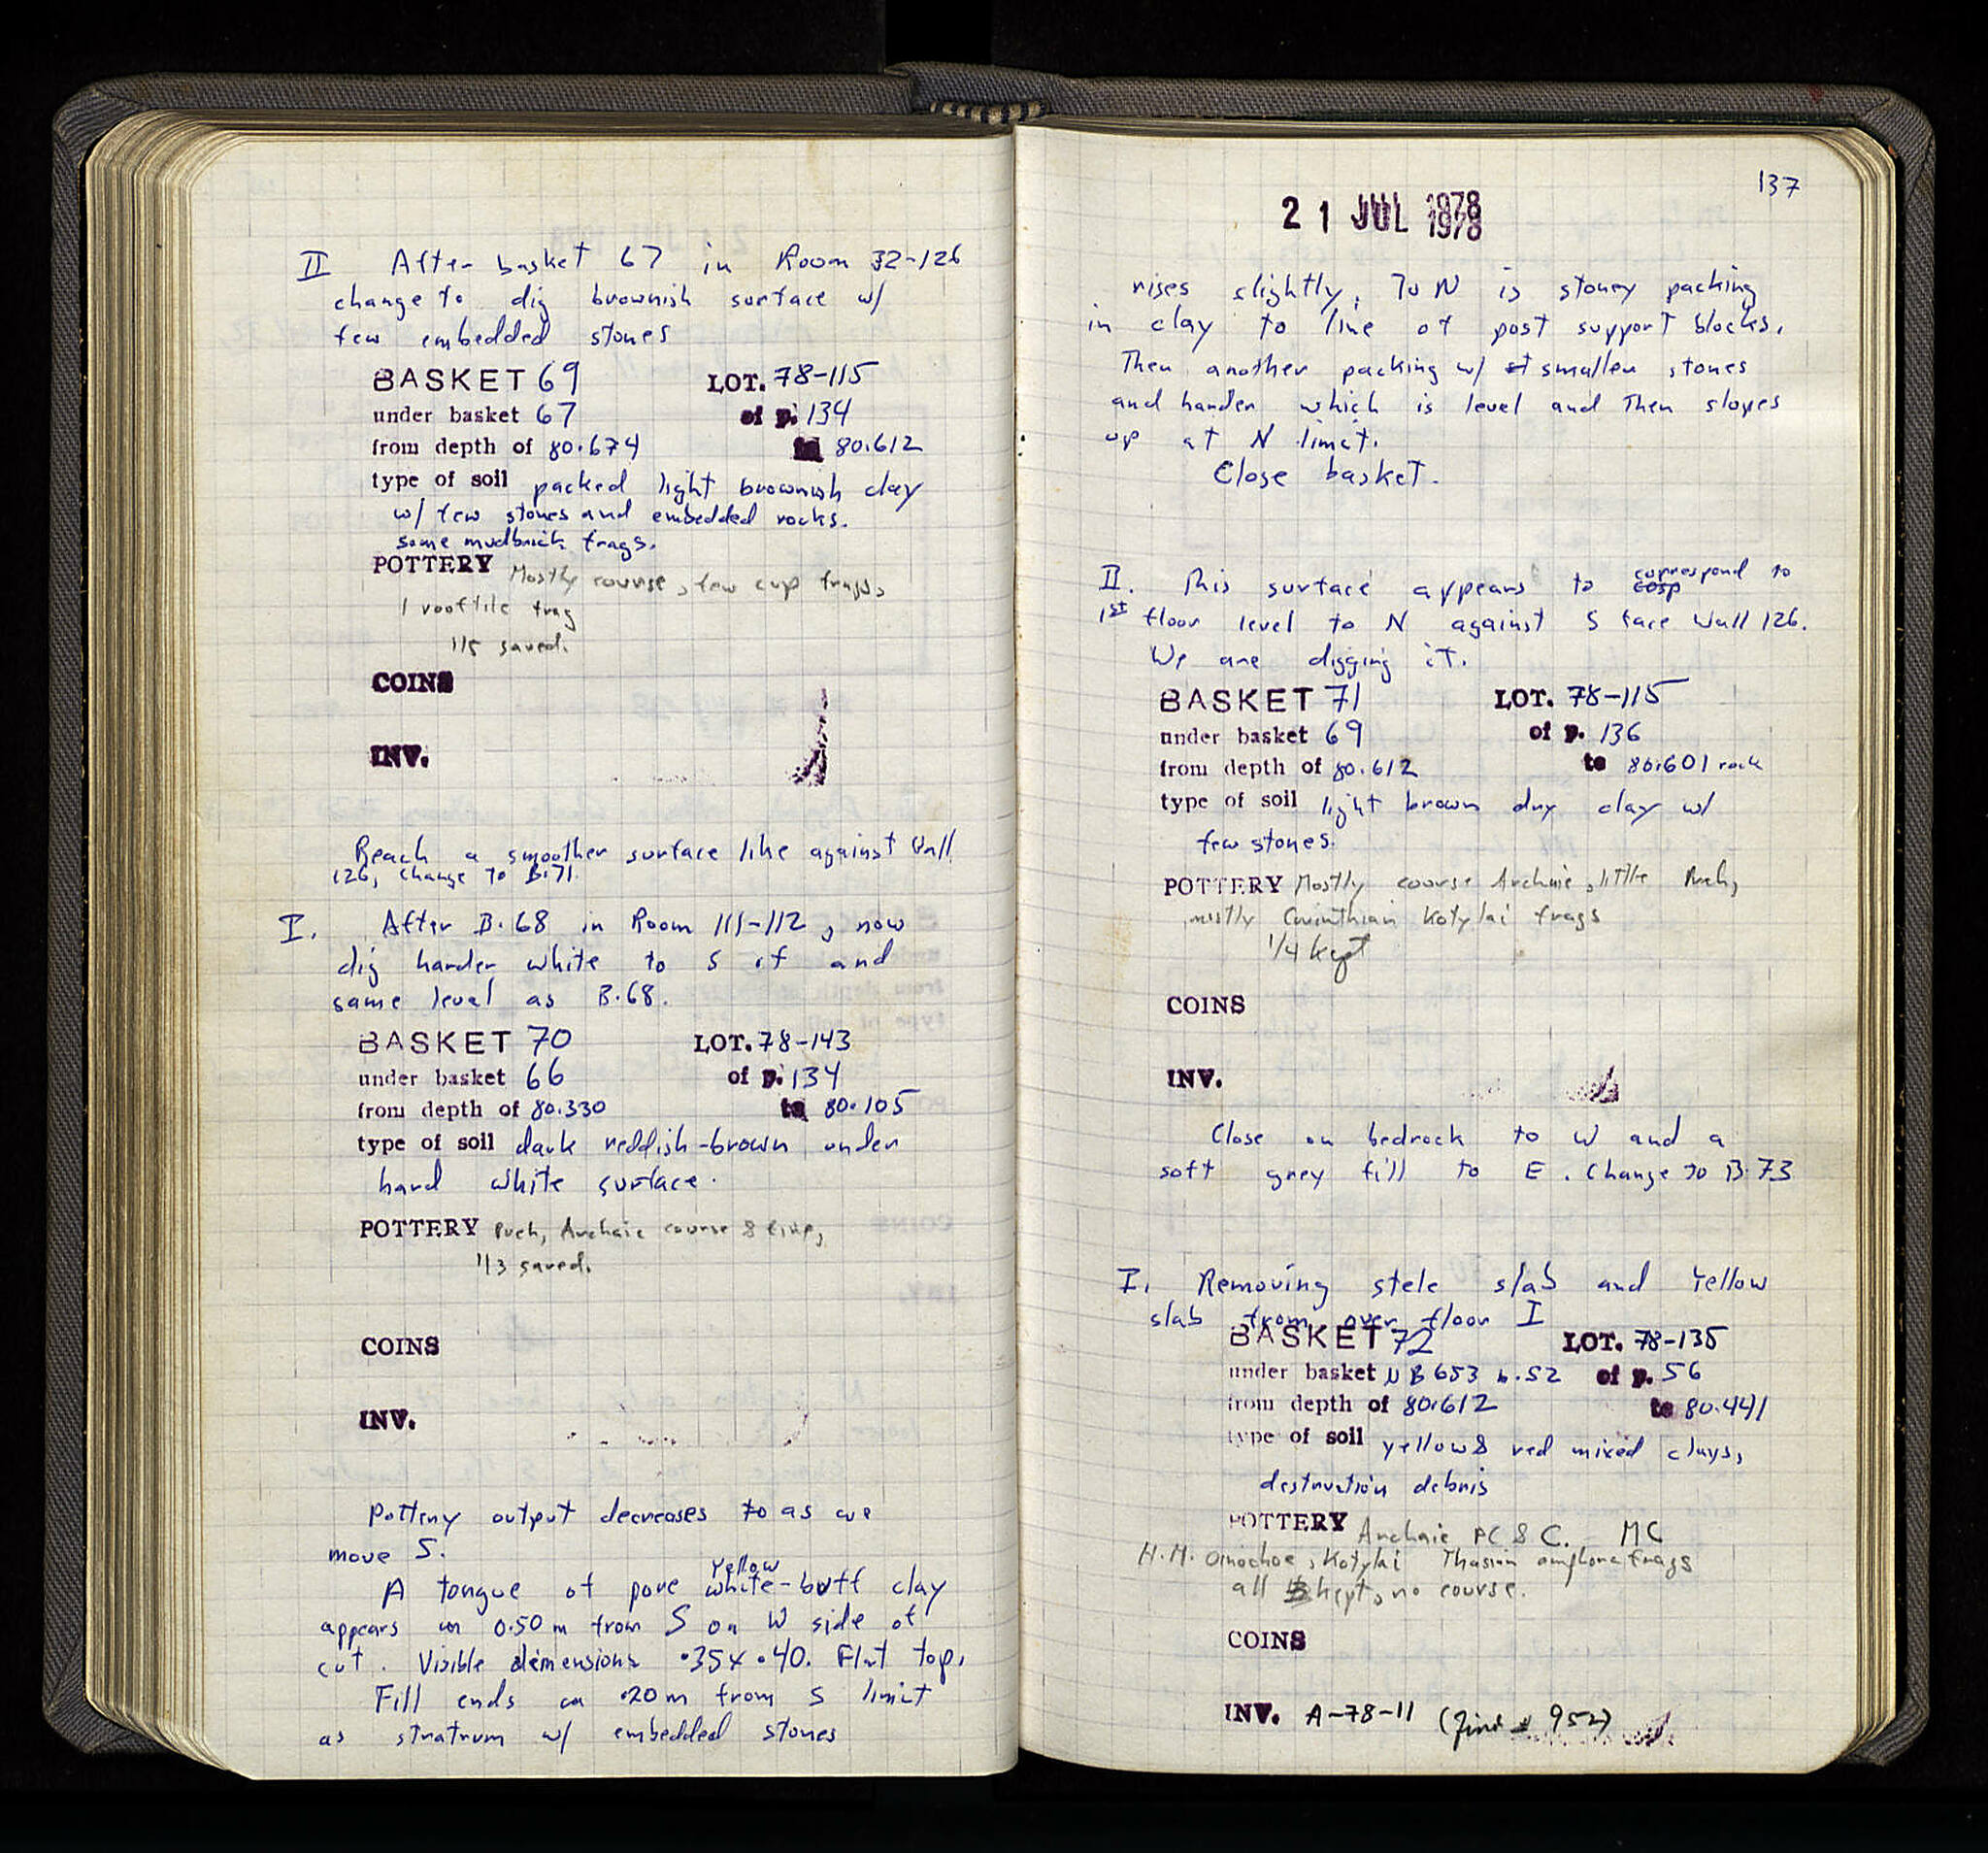 II After basket 67 in Room 32-126
change to dig brownish surface w/
few embedded stones
BASKET 69 LOT. 78-115
under basket 67 of p. 134
from depth of 80.674 to 80.612
type of soil packed light brownish clay
w/ few stones and embedded rocks.
some mudbrick frags.
POTTERY Mostly course, few cup frags,
1 rooftile frag
1/5 saved.
COINS
INV.
Reach a smoother surface like against Wall
126, change to B.71.
I. After B.68 in Room 111-112, now
dig harder white to S of and
same level as B.68.
BASKET 70 LOT. 78-143
under basket 66 of p. 134
from depth of 80.330 to 80.105
type of soil dark reddish-brown under
hard white surface.
POTTERY Puch, Archaic course & fine,
1/3 saved.
COINS
INV.
Pottery output decreases to as we
move S.
A tongue of pure white yellow-buff clay
appears ca 0.50 m from S on W side of
cut. Visible dimensions .35 x .40. Flat top.
Fill ends ca .20 m from S limit
as stratrum w/ embedded stones
137
21 JUL 1978
rises slightly. To N is stoney packing
in clay to line of post support blocks.
Then another packing w/ st smaller stones
and harder which is level and then slopes
up at N limit.
Close basket.
II. This surface appears to cosp correspond to
1st floor level to N against S face Wall 126.
We are digging it.
BASKET 71 LOT. 78-115
under basket 69 of p. 136
from depth of 80.612 to 80.601 rock
type of soil light brown dry clay w/
few stones.
POTTERY Mostly course Archaic, little Puch,
mostly Corinthian Kotylai frags
1/4 kept
COINS
INV.
Close on bedrock to W and a
soft grey fill to E. Change to B.73
I. Removing stele slab and Yellow
slab from over floor I
BASKET 72 LOT. 78-135
under basket NB 653 b.52 of p. 56
from depth of 80.612 to 80.441
type of soil yellow & red mixed clays,
destruction debris
POTTERY Archaic PC & C. MC
H.M. Oinochoe, Kotylai Thasian amphora frags
all kept, no course.
COINS
INV. A-78-11 (find # 952)